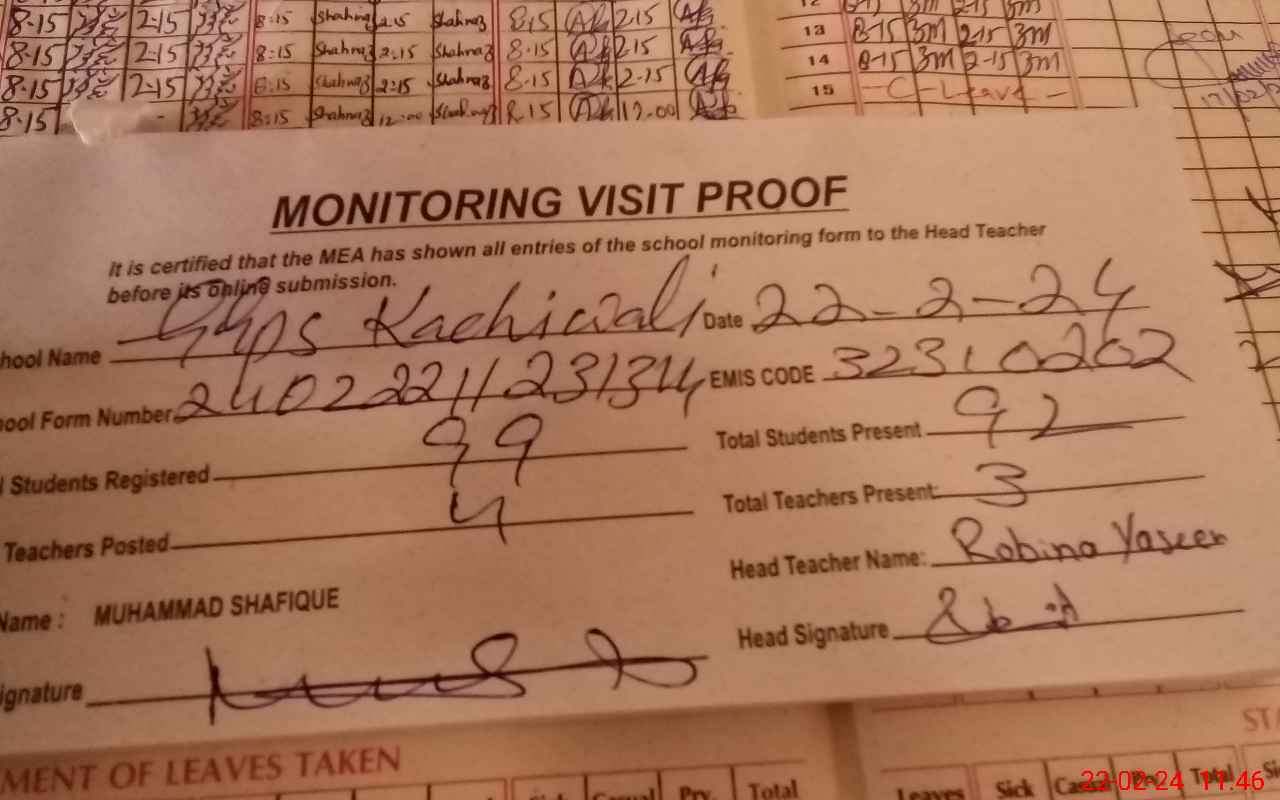 8-15 2-15 8:15 Shahnaz 2:15 Shahnaz 8-15 2-15
8-15 2-15 8:15 Shahnaz 2:15 Shahnaz 8-15 2-15 13 8-15 3m 2-15 3m
8-15 2-15 8:15 Shahnaz 2:15 Shahnaz 8-15 2-15 14 8-15 3m 2-15 3m
8-15 8:15 Shahnaz 12:00 Shahnaz 8-15 12-00 15 -C-Leave-
MONITORING VISIT PROOF
It is certified that the MEA has shown all entries of the school monitoring form to the Head Teacher
before its online submission.
hool Name Ggps Kachiwali Date 22-2-24
ool Form Number 24022211231314 EMIS CODE 32310202
l Students Registered 99 Total Students Present 92
Teachers Posted 4 Total Teachers Present: 3
Head Teacher Name: Robina Yaseen
Name : MUHAMMAD SHAFIQUE
Head Signature
ignature
MENT OF LEAVES TAKEN
STA
Pry. Total Leaves Sick Casual Pry. Total
22-02-24 11:46